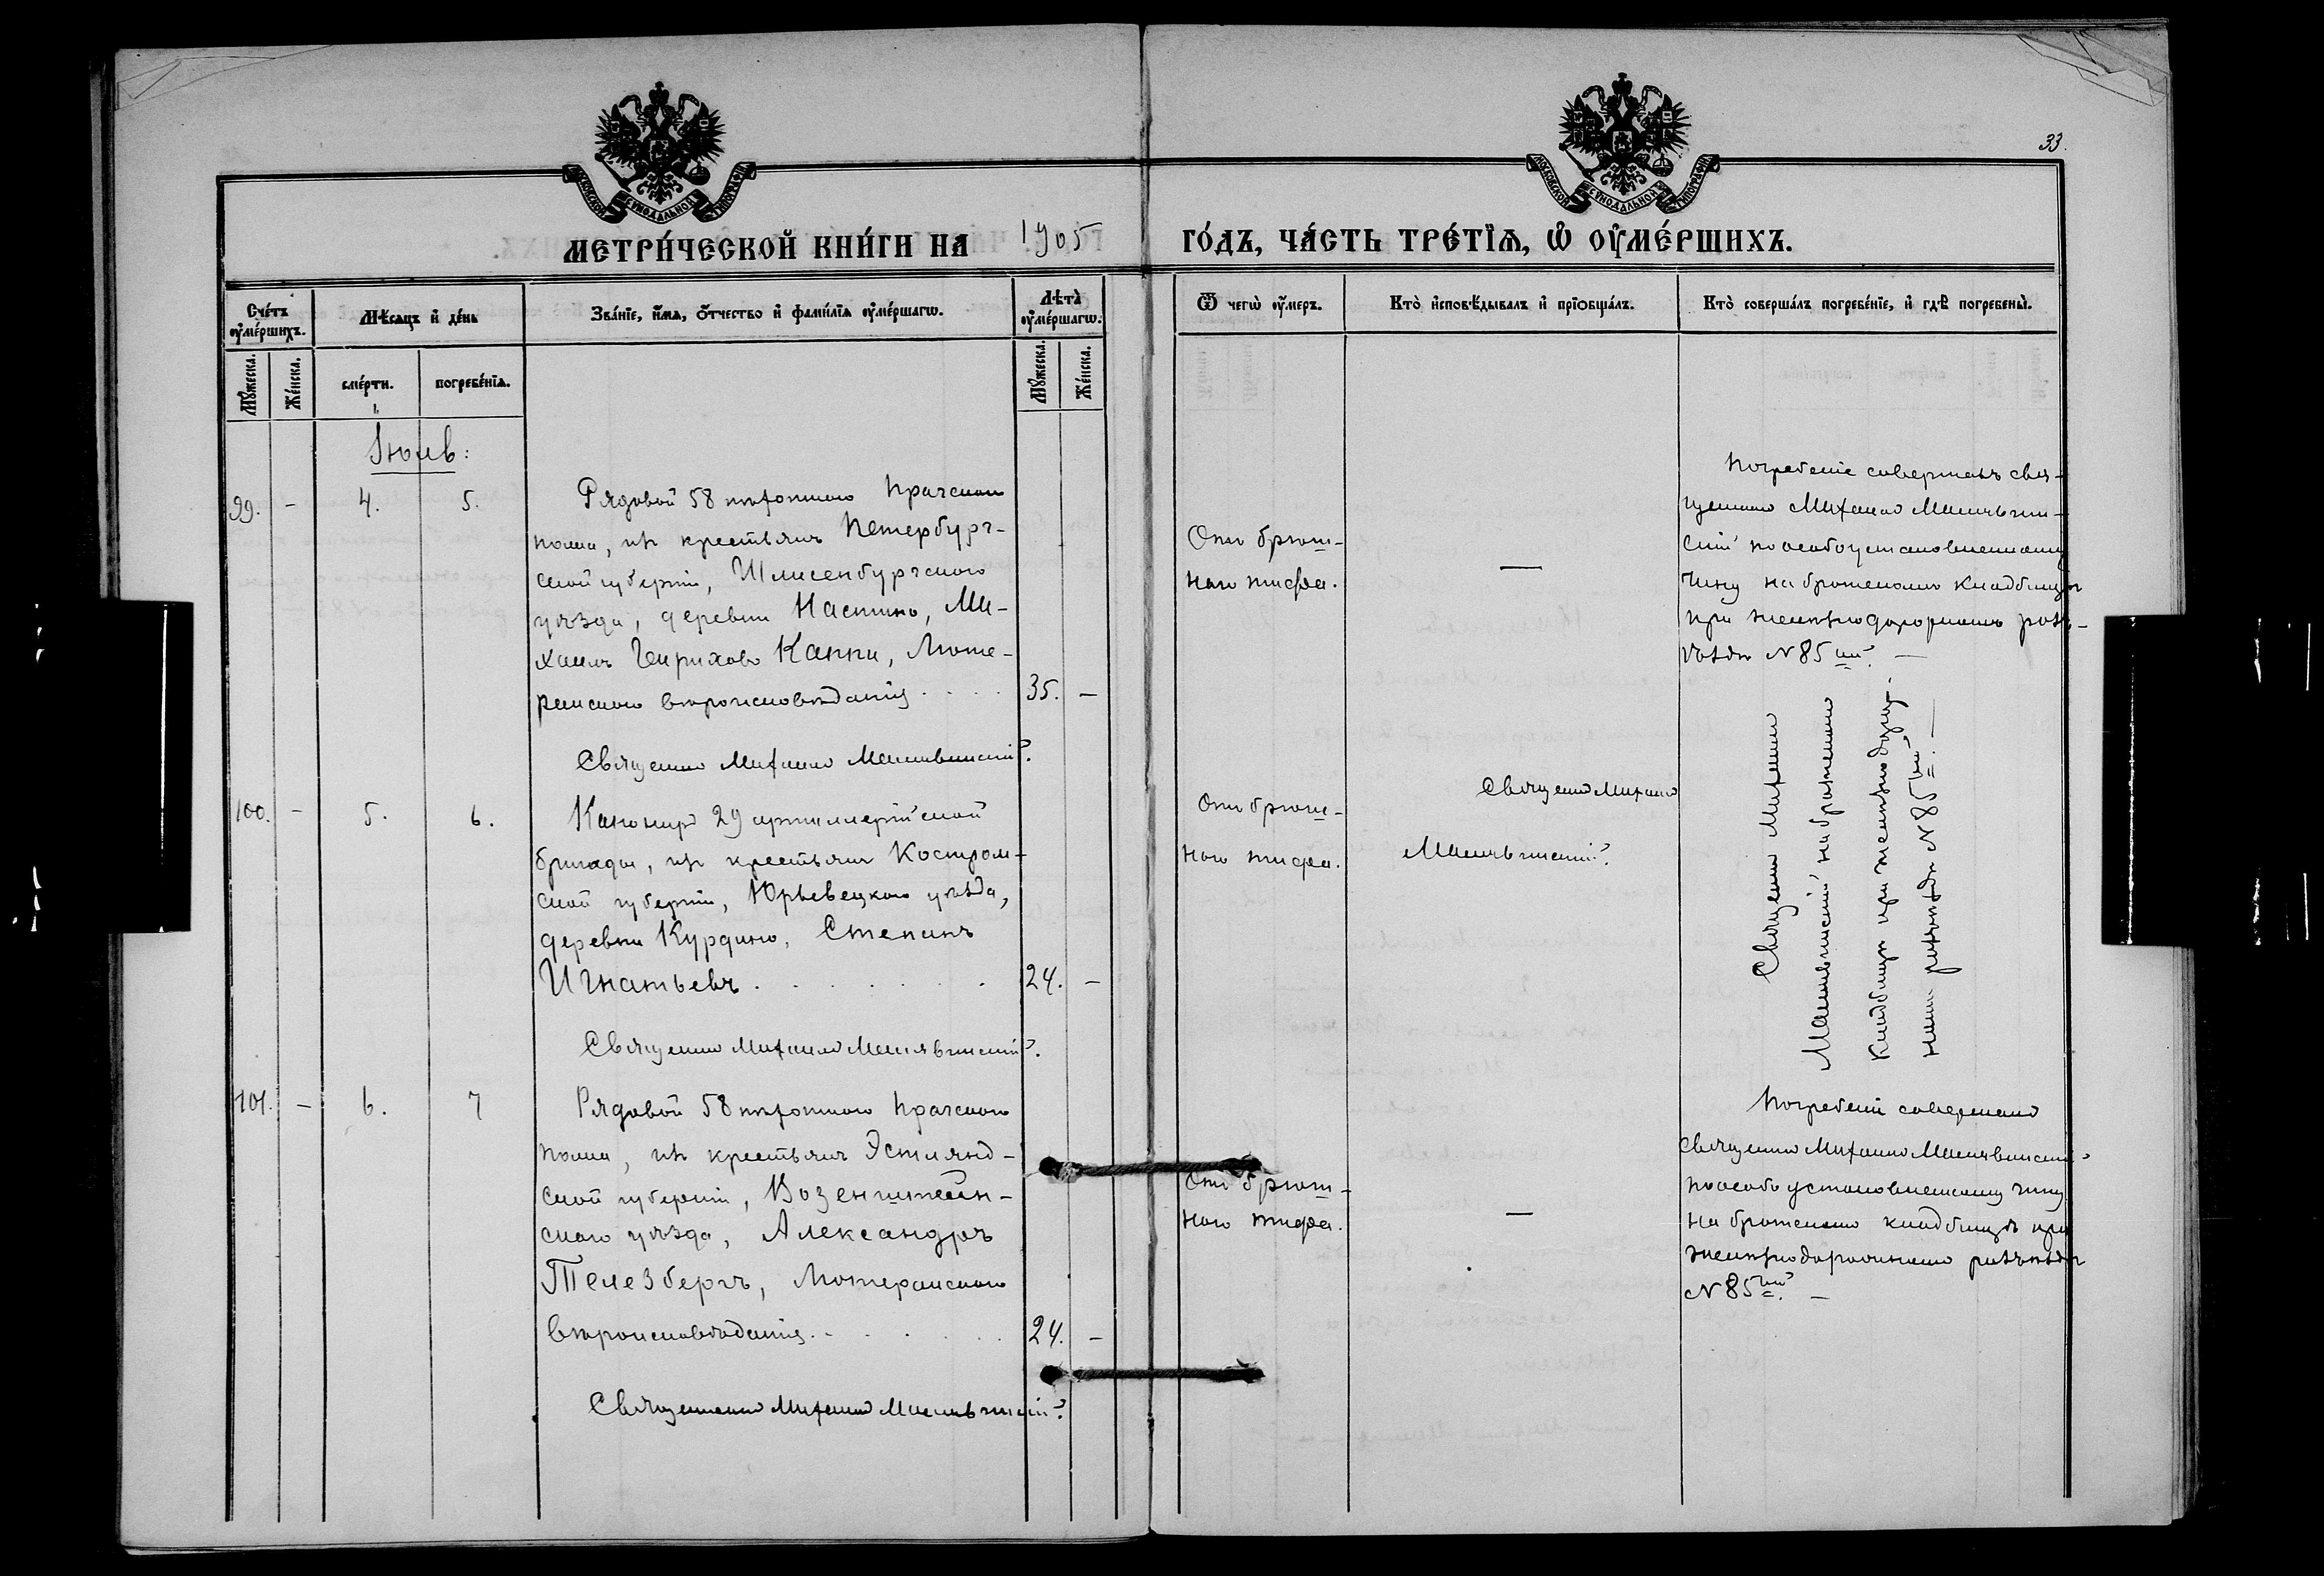 33.
МОСКОВСКОЙ СѴНОДАЛЬНОЙ ТИПОГРАФІИ
МОСКОВСКОЙ СѴНОДАЛЬНОЙ ТИПОГРАФІИ
МЕТРИ́ЧЕСКОЙ КНИ́ГИ НА 1905 ГО́ДЪ, ЧА́СТЬ ТРЕ́ТІѦ, Ѡ҆ ОУ҆МЕ́РШИХЪ.
Сче́тъ оу҆ме́ршихъ.
Мꙋ́жеска.
Же́нска.
Мѣ́сяцъ и҆ де́нь
сме́рти.
погребе́нїѧ.
Зва́нїе, и҆́мѧ, ѻ҆́тчество и҆ фами́лїѧ оу҆ме́ршагѡ.
Лѣ́та̀ оу҆ме́ршагѡ.
Мꙋ́жеска.
Же́нска.
Ѿ чегѡ̀ оу҆́меръ.
Кто̀ и҆сповѣ́дывалъ и҆ прїѻбща́лъ.
Кто̀ соверша́лъ погребе́нїе, и҆ гдѣ̀ погребены̀.
Іюль:
99. - 4. 5.
Рядовой 58 пѣхотнаго Прагскаго
полка, изъ крестьянъ Петербург-
ской губерніи, Шлиссенбургскаго
уѣзда, деревни Настино, Ми-
хаилъ Генриховъ Каппи, Люте-
ранскаго вѣроисповѣданія . . . . 35. -
Священникъ Михаилъ
Отъ брюш-
наго тифа.
—
Погребеніе совершалъ свя-
щенникъ Михаилъ
по особоустановленному
чину на братскомъ кладбищѣ
при желѣзнодорожномъ разъ-
ѣздѣ № 85 ый. —
100. - 5. 6.
Канониръ 29 артиллерійской
бригады, изъ крестьянъ Костром-
ской губерніи, Юрьевецкаго уѣзда,
деревни Курдино, Степанъ
Игнатьевъ . . . . . . . 24. -
Священникъ Михаилъ
Отъ брюш-
наго тифа.
Священникъ Михаилъ
Священникъ Михаилъ
на братскомъ
кладбищѣ при желѣзнодорож-
номъ разъѣздѣ № 85 ый. —
101. - 6. 7
Рядовой 58 пѣхотнаго Прагскаго
полка, изъ крестьянъ Эстлянд-
ской губерніи, Везенштейн-
скаго уѣзда, Александръ
Телезбергъ, Лютеранскаго
вѣроисповѣданія . . . . . . 24. -
Священникъ Михаилъ
Отъ брюш-
наго тифа.
—
Погребеніе совершалъ
священникъ Михаилъ
по особо установленному чину
на братскомъ кладбищѣ при
желѣзнодорожномъ разъѣздѣ
№ 85 ый. —